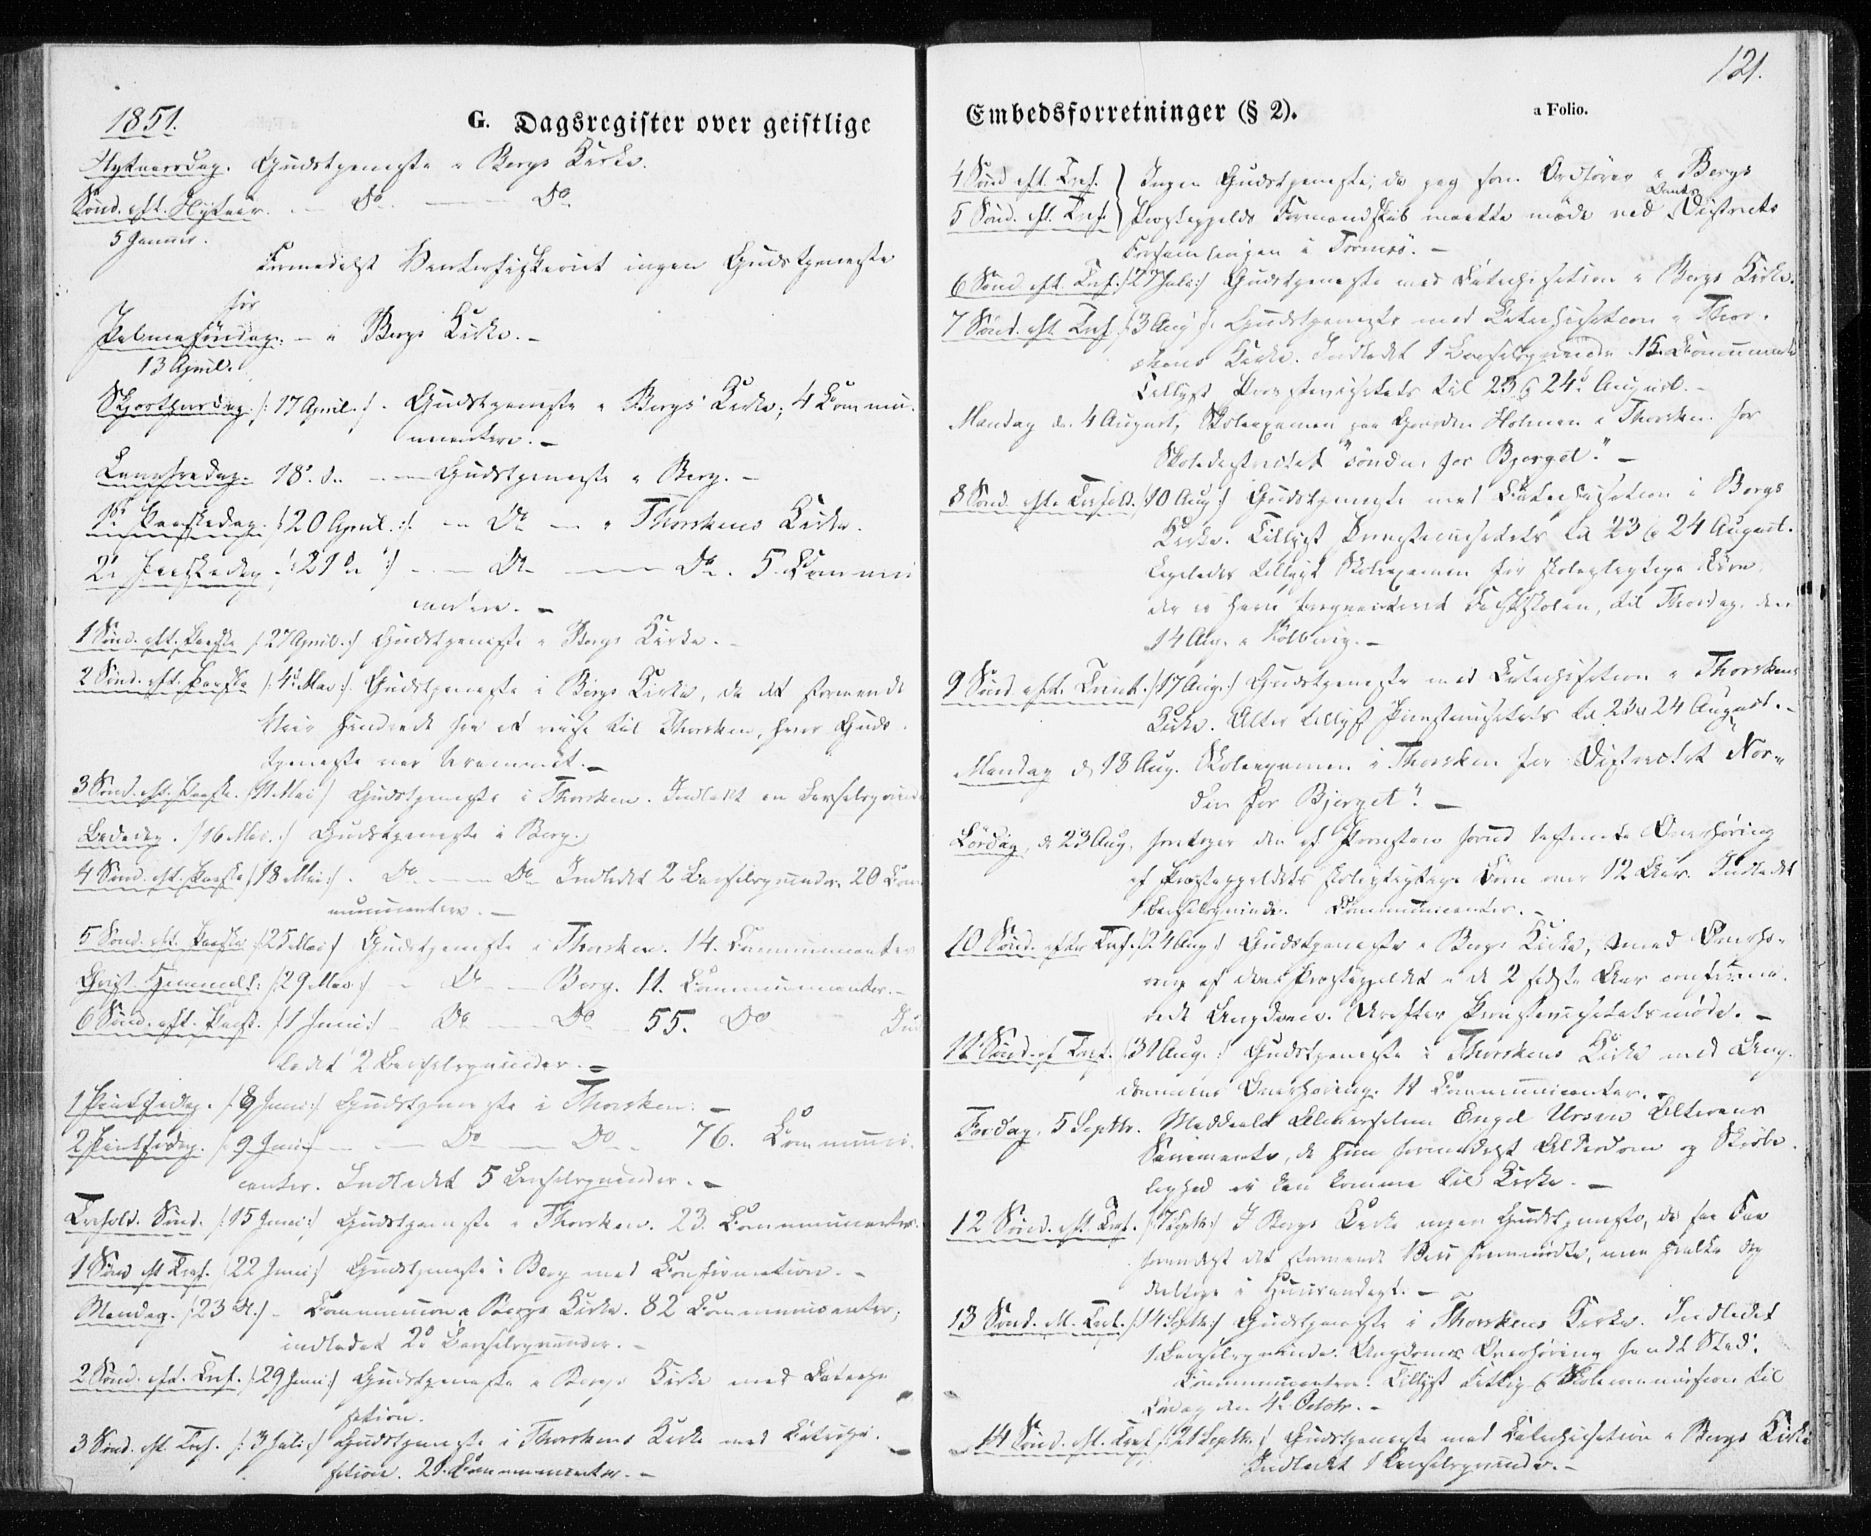 1851.
G. Dagsregister over geistlige
Nytaarsdag. Gudstjeneste i Bergs Kirke.
Sönd. eft. Nytaar. — Do — Do
5 Januar.
Formedelst Vinterfiskeriet ingen Gudstjeneste
för
Palmesöndag. — i Bergs Kirke. —
13 April.
Skjærthorsdag. /: 17 April. :/ Gudstjeneste i Bergs Kirke; 4 Commu-
nicantere. —
Langfredag. 18. d. — Gudstjeneste i Berg. —
1ste Paaskedag. /: 20 April. :/ — Do — i Thorskens Kirke.
2den Paaskedag /: 21 d. :/ — Do — Do. 5 Communi
cantere. —
1 Sönd. eft. Paaske /: 27 April. :/ Gudstjeneste i Bergs Kirke. —
2 Sönd. eft. Paaske /: 4de Mai :/ Gudstjeneste i Bergs Kirke, da det stormende
Veir hindrede fra at reise til Thorsken, hvor Guds-
tjeneste var berammet. —
3 Sönd. eft. Paaske. /: 11 Mai :/ Gudstjeneste i Thorsken. Indledet en Barselqvinde
Bededag. /: 16 Mai. :/ Gudstjeneste i Berg.
4 Sönd. eft. Paaske /: 18 Mai :/ Do — Do Indledet 2 Barselqvinder. 20 Com
municantere. —
5 Sönd. eft. Paaske /: 25 Mai :/ Gudstjeneste i Thorsken. 14. Communicanter
Christ. Himmelf. /: 29 Mai :/ — Do — Berg. 11. Communicanter. —
6 Sönd. eft. Paask. /: 1 Juni :/ Do — Do — 55. Do Ind
ledet 2 Barselqvinder. —
1 Pintsedag. /: 8 Juni :/ Gudstjeneste i Thorsken. —
2 Pintsedag. /: 9 Juni :/ — Do — Do — 76. Communi-
canter. Indledet 5 Barselqvinder. —
Trefold. Sönd. /: 15 Juni :/ Gudstjeneste i Thorsken. 23. Communicanter.
1 Sönd. eft. Tref. /: 22 Juni :/ Gudstjeneste i Berg med Confirmation. —
Mandag. /: 23 d. :/ — Communion i Bergs Kirke. 82 Communicanter;
indledet 2de Barselqvinder. —
2 Sönd. eft. Tref. /: 29 Juni :/ Gudstjeneste i Bergs Kirke med Catechi
sation.
3 Sönd. eft. Tref. /: 3 Juli :/ Gudstjeneste i Thorskens Kirke med Catechi-
sation. 21. Communicanter. —
121.
Embedsforretninger (§ 2).
a Folio.
4 Sönd. eft. Tref. } Ingen Gudstjeneste, da jeg som Ordförer i Bergs
5 Sönd. eft. Tref. } Præstegjelds Formandskab maatte möde ved Amts Districts
Forsamlingen i Tromsö. —
6 Sönd. eft. Tref. /: 27 Juli :/ Gudstjeneste med Catechisation i Bergs Kirke.
7 Sönd. eft. Tref. /: 3 Aug :/ Gudstjeneste med Catechisation i Thor-
skens Kirke. Indledet 1 Barselqvinde. 15. Communicante
Tillyst Provstevisitats til 23 og 24de August. —
Mandag d. 4 August, Skoleexamen paa Gaarden Holmen i Thorsken for
Skoledistrictet "sönden for Bjerget." —
8 Sönd. efter Trefold. /: 10 Aug :/ Gudstjeneste med Catechisation i Bergs
Kirke. Tillyst Provstevisitats til 23 og 24 August.
Ligeledes tillyst Skoleexamen for skolepligtige Börn,
14 Aug. i
9 Sönd. eft. Trinit. /: 17 Aug. :/ Gudstjeneste med Catechisation i Thorskens
Kirke. Atter tillyst Provstevisitats til 23 og 24 August. —
Mandag d. 18 Aug. Skoleexamen i Thorsken for Districtet Nor-
den for Bjerget". —
Lördag, d. 23 Aug, foretages den af Provsten forud bestemte Overhöring
af Præstegjeldets skolepligtige Börn over 12 Aar. Indledet
1 Barselqvinde. Communicanter. —
10 Sönd. efter Tref. /: 24 Aug :/ Gudstjeneste i Bergs Kirke, med Overhö-
ring af den i Præstegjeldet i de 2 sidste Aar confirme-
rede Ungdom. Derefter Provstevisitatsmöde. —
11 Sönd. ef Tref. /: 31 Aug. :/ Gudstjeneste i Thorskens Kirke med Ung-
dommens Overhöring. 11 Communicanter. —
Fredag, 5 Septbr. Meddeelt Engel Alterens
Sacramente, da hun formedelst Alderdom og Skröbe-
lighed ei kan komme til Kirke. —
12 Sönd. eft. Tref. /: 7 Septbr :/ I Bergs Kirke ingen Gudstjeneste, da faa Faa
formedelst det stormende Veir fremmödte, men holdtes dog
deeltage i Huusandagt. —
13 Sönd. eft. Tref. /: 14 Septbr :/ Gudstjeneste i Thorskens Kirke. Indledet
1 Barselqvinde. Ungdoms Overhöring fandt Sted.
Communicantere. Tillyst Fattig- og Skolecommission til
Lördag den 4de Octobr. —
14 Sönd. eft. Tref. /: 21 Septbr. :/ Gudstjeneste med Catechisation i Bergs Kirke
Indledet 1 Barselqvinde. —